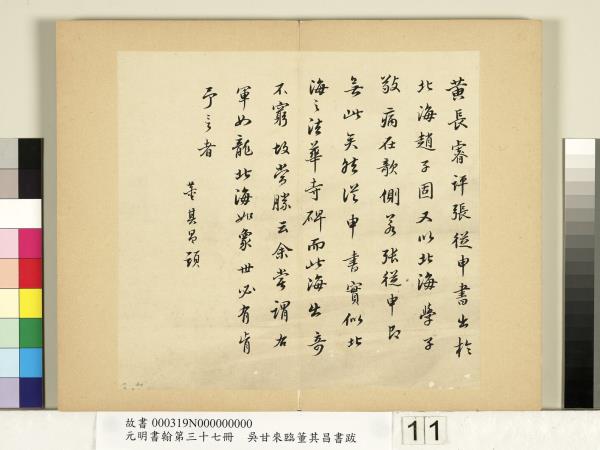 黃長睿評張從申書出於
北海趙子固又以北海學子
敬病在欹側若張從申即
無此矣然從申書實似北
海之法華寺碑而北海出奇
不窮故嘗勝云余嘗謂右
軍如龍北海如象世必有肯
予言者
董其昌題
故書 000319N000000000
元明書翰第三十七冊 吳甘來臨董其昌書跋
11